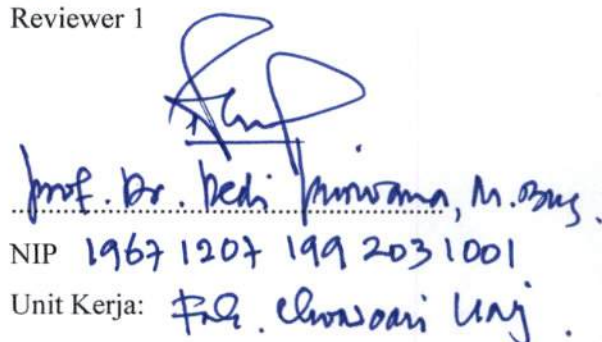 Reviewer 1
Prof. Dr. Dedi Purwana, M.Bus.
NIP 19671207 199203 1001
Unit Kerja: Fak. Ekonomi UNJ.